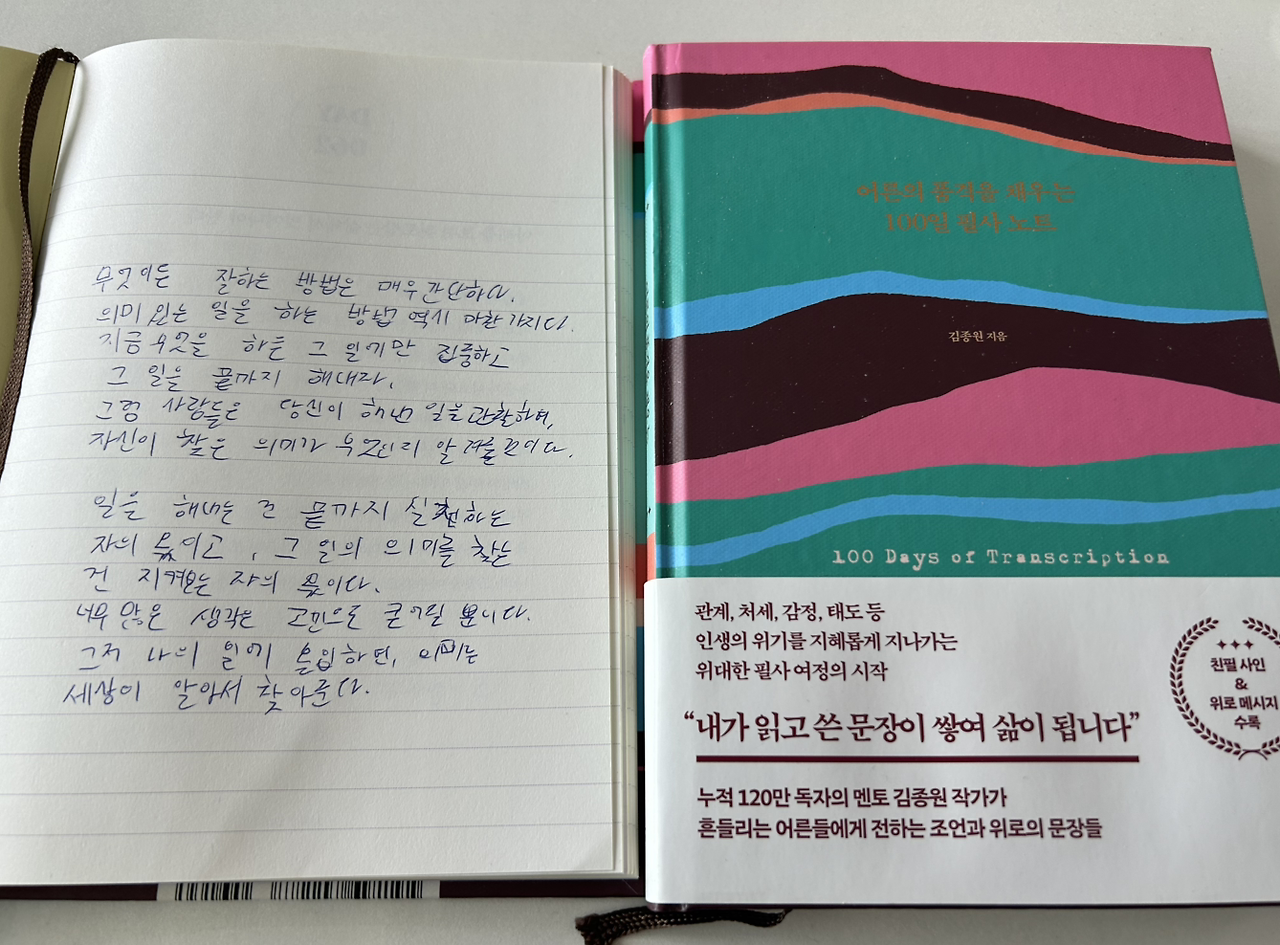 무엇이든 잘하는 방법은 매우 간단하다.
의미 있는 일을 하는 방법 역시 마찬가지다.
지금 무엇을 하든 그 일에만 집중하고
그 일을 끝까지 해내자.
그럼 사람들은 당신이 해낸 일을 관찰하며,
자신이 찾은 의미가 무엇인지 알려줄 것이다.
일을 해내는 건 끝까지 실천하는
자의 몫이고, 그 일의 의미를 찾는
건 지켜보는 자의 몫이다.
너무 많은 생각은 고민으로 번질 뿐이다.
그저 나의 일에 몰입하면, 의미는
세상이 알아서 찾아준다.
어른의 품격을 채우는
100일 필사 노트
김종원 지음
100 Days of Transcription
관계, 처세, 감정, 태도 등
인생의 위기를 지혜롭게 지나가는
위대한 필사 여정의 시작
친필 사인
&
위로 메시지
수록
“내가 읽고 쓴 문장이 쌓여 삶이 됩니다”
누적 120만 독자의 멘토 김종원 작가가
흔들리는 어른들에게 전하는 조언과 위로의 문장들